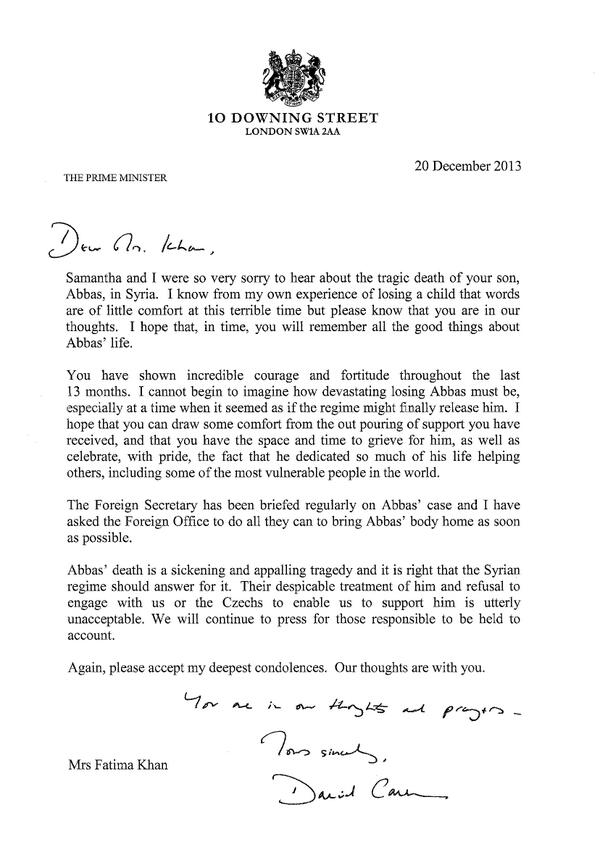 10 DOWNING STREET
LONDON SW1A 2AA
20 December 2013
THE PRIME MINISTER
Dear Mrs. Khan,
Samantha and I were so very sorry to hear about the tragic death of your son,
Abbas, in Syria. I know from my own experience of losing a child that words
are of little comfort at this terrible time but please know that you are in our
thoughts. I hope that, in time, you will remember all the good things about
Abbas' life.
You have shown incredible courage and fortitude throughout the last
13 months. I cannot begin to imagine how devastating losing Abbas must be,
especially at a time when it seemed as if the regime might finally release him. I
hope that you can draw some comfort from the out pouring of support you have
received, and that you have the space and time to grieve for him, as well as
celebrate, with pride, the fact that he dedicated so much of his life helping
others, including some of the most vulnerable people in the world.
The Foreign Secretary has been briefed regularly on Abbas' case and I have
asked the Foreign Office to do all they can to bring Abbas' body home as soon
as possible.
Abbas' death is a sickening and appalling tragedy and it is right that the Syrian
regime should answer for it. Their despicable treatment of him and refusal to
engage with us or the Czechs to enable us to support him is utterly
unacceptable. We will continue to press for those responsible to be held to
account.
Again, please accept my deepest condolences. Our thoughts are with you.
You are in our thoughts and prayers –
Yours sincerely,
Mrs Fatima Khan
David Cameron